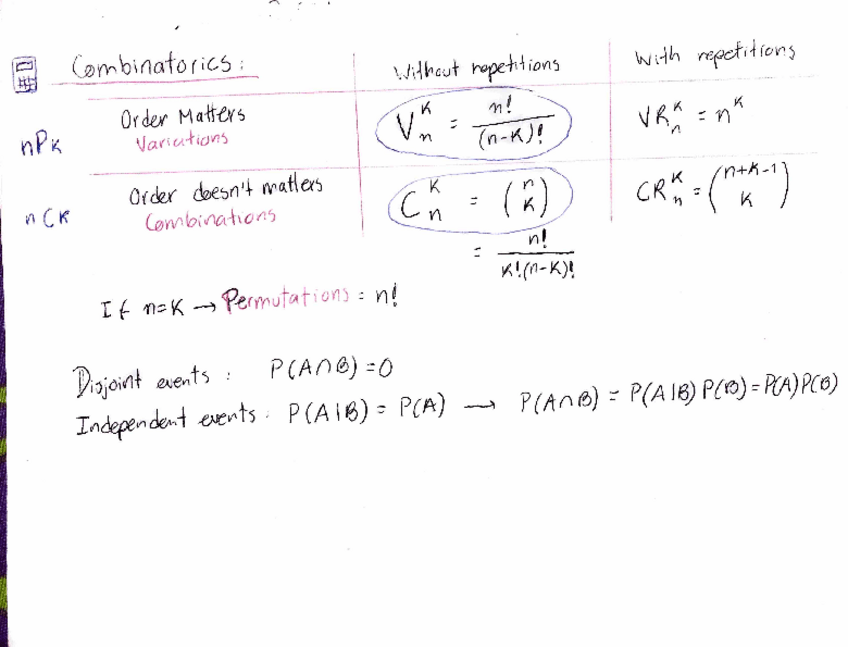 Combinatorics: Without repetitions With repetitions
nPk Order Matters V_n^k = n!/(n-k)! VR_n^k = n^k
Variations
nCk Order doesn't matters C_n^k = (n k) CR_n^k = (n+k-1 k)
Combinations = n!/k!(n-k)!
If n=k → Permutations = n!
Disjoint events: P(A∩B)=0
Independent events: P(A|B) = P(A) → P(A∩B) = P(A|B)P(B)=P(A)P(B)